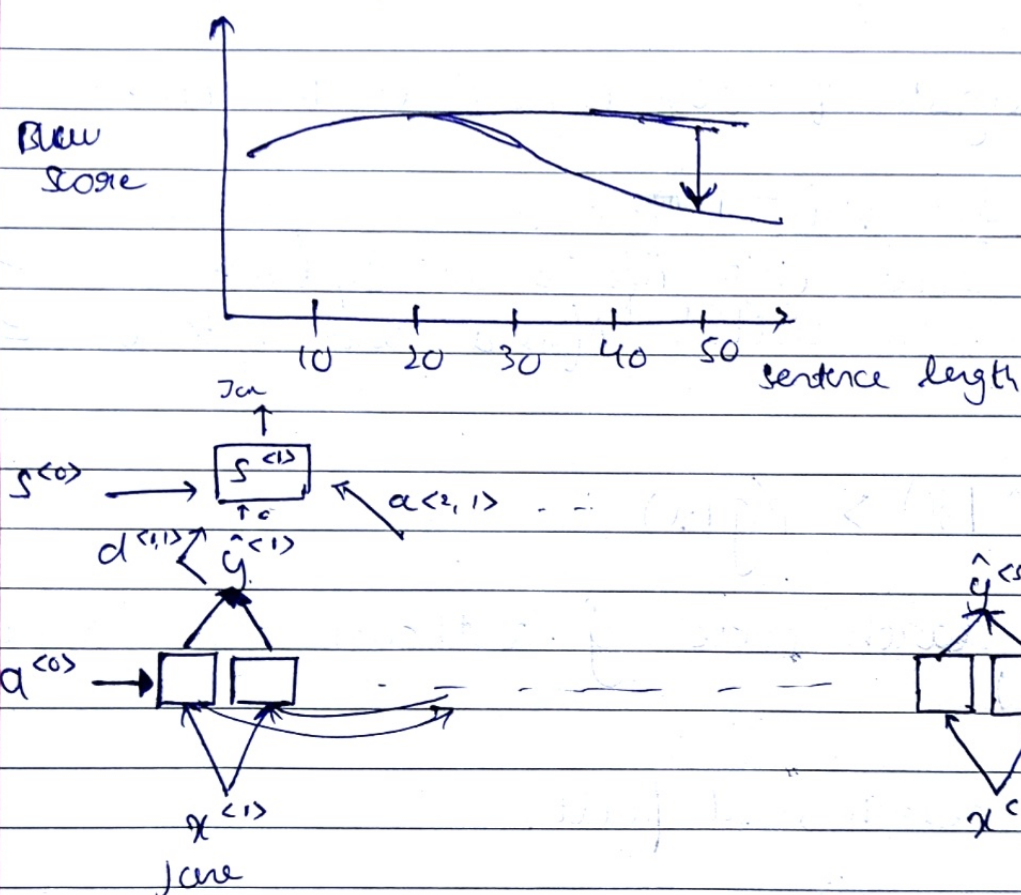 Bleu
Score
10 20 30 40 50
sentence length
Jan
S<0> S<1>
a<2,1> . - -
↑ c
d<1,1> ŷ<1>
ŷ<5
a<0>
x<1> x<
Jane